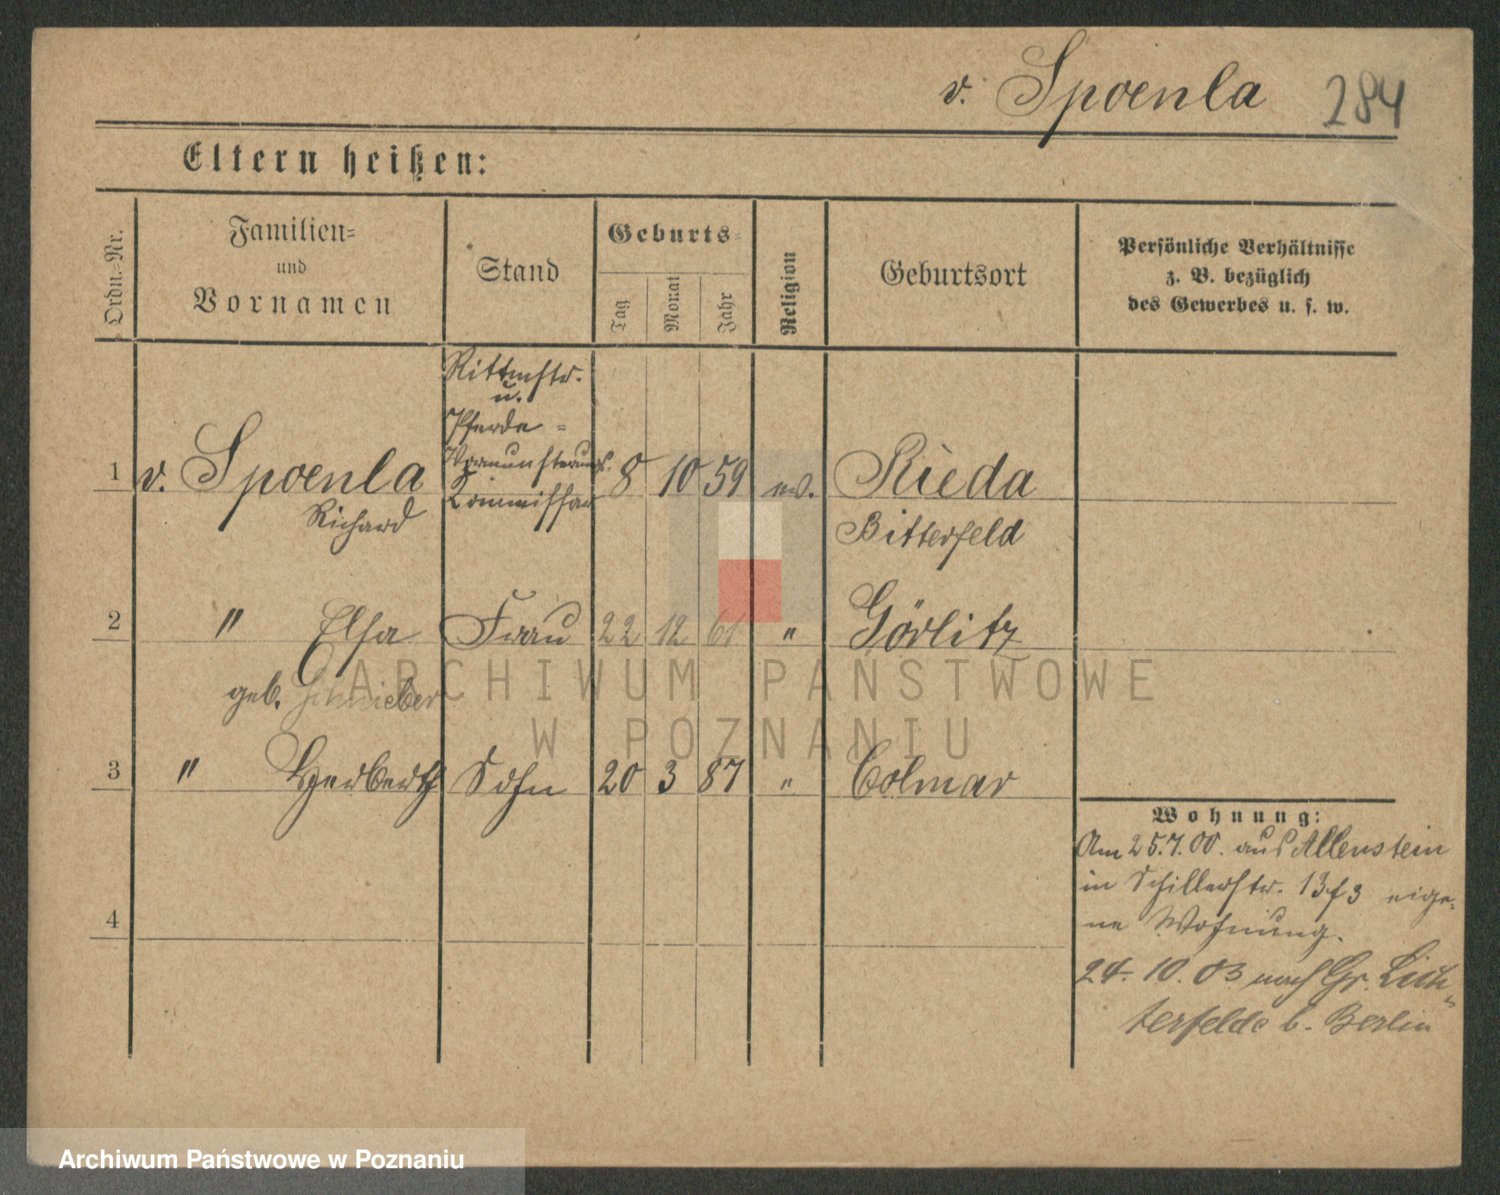 v. Spoenla 284
Eltern heißen:
Ordn.-Nr.
Familien-
und
Vornamen
Stand
Geburts-
Tag
Monat
Jahr
Religion
Geburtsort
Persönliche Verhältnisse
z. B. bezüglich
des Gewerbes u. s. w.
Rittmstr.
u.
Pferde-
Vormusterungs.
Commissar
1 v. Spoenla 8 10 59 ev. Rieda
Richard Bitterfeld
2 " Elsa Frau 22 12 61 " Görlitz
geb. Schnieber
3 " Herberth Sohn 20 3 87 " Colmar
Wohnung:
Am 25.7.00. aus Allenstein
in Schillerstr. 13 f 3 eige-
ne Wohnung.
4
24.10.03 nach Gr. Lich-
terfelde b. Berlin
ARCHIWUM PAŃSTWOWE
W POZNANIU
Archiwum Państwowe w Poznaniu